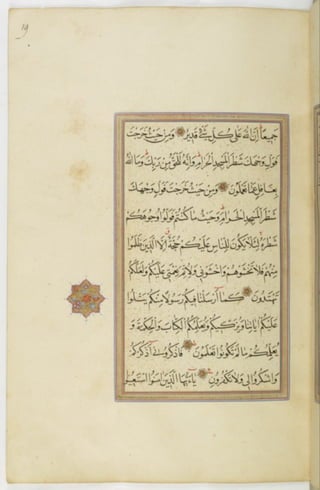 19
جَمِيعًا إِنَّ اللَّهَ عَلَى كُلِّ شَيْءٍ قَدِيرٌ وَمِنْ حَيْثُ خَرَجْتَ
فَوَلِّ وَجْهَكَ شَطْرَ الْمَسْجِدِ الْحَرَامِ وَإِنَّهُ لَلْحَقُّ مِنْ رَبِّكَ وَمَا اللَّهُ
بِغَافِلٍ عَمَّا تَعْمَلُونَ وَمِنْ حَيْثُ خَرَجْتَ فَوَلِّ وَجْهَكَ
شَطْرَ الْمَسْجِدِ الْحَرَامِ وَحَيْثُ مَا كُنْتُمْ فَوَلُّوا وُجُوهَكُمْ
شَطْرَهُ لِئَلَّا يَكُونَ لِلنَّاسِ عَلَيْكُمْ حُجَّةٌ إِلَّا الَّذِينَ ظَلَمُوا
مِنْهُمْ فَلَا تَخْشَوْهُمْ وَاخْشَوْنِي وَلِأُتِمَّ نِعْمَتِي عَلَيْكُمْ وَلَعَلَّكُمْ
تَهْتَدُونَ كَمَا أَرْسَلْنَا فِيكُمْ رَسُولًا مِنْكُمْ يَتْلُوا
عَلَيْكُمْ آيَاتِنَا وَيُزَكِّيكُمْ وَيُعَلِّمُكُمُ الْكِتَابَ وَالْحِكْمَةَ وَ
يُعَلِّمُكُمْ مَا لَمْ تَكُونُوا تَعْلَمُونَ فَاذْكُرُونِي أَذْكُرْكُمْ
وَاشْكُرُوا لِي وَلَا تَكْفُرُونِ يَا أَيُّهَا الَّذِينَ آمَنُوا اسْتَعِينُوا